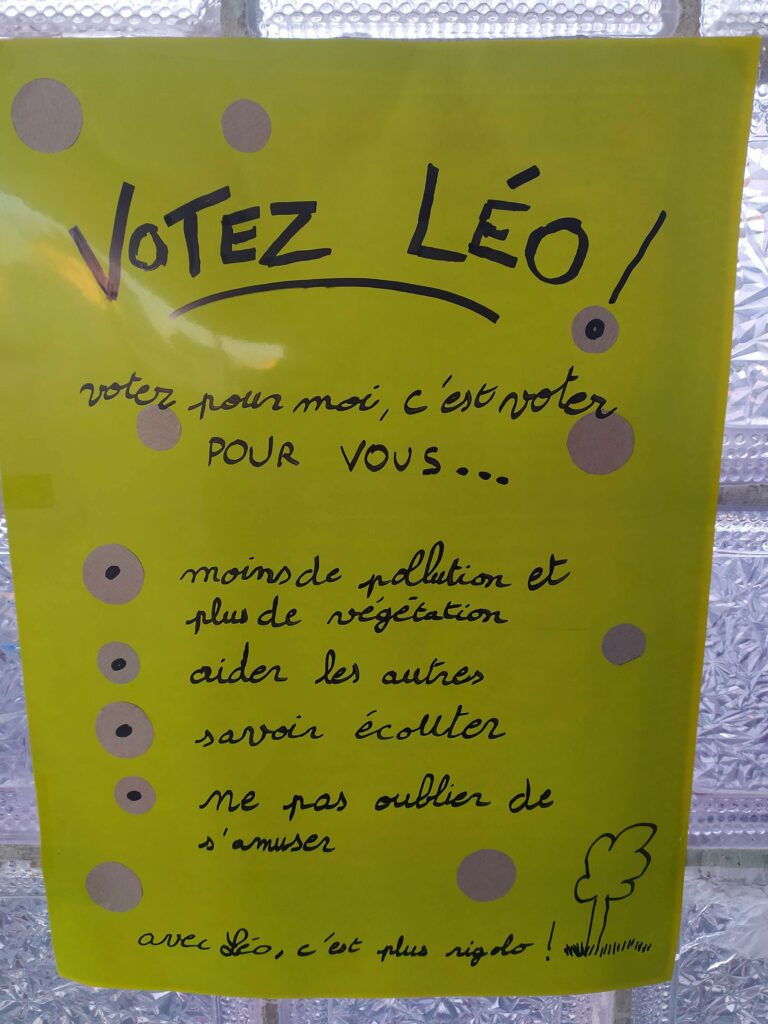 VOTEZ LÉO !
voter pour moi, c'est voter
POUR VOUS...
moins de pollution et
plus de végétation
aider les autres
savoir écouter
ne pas oublier de
s'amuser
avec Léo, c'est plus rigolo !